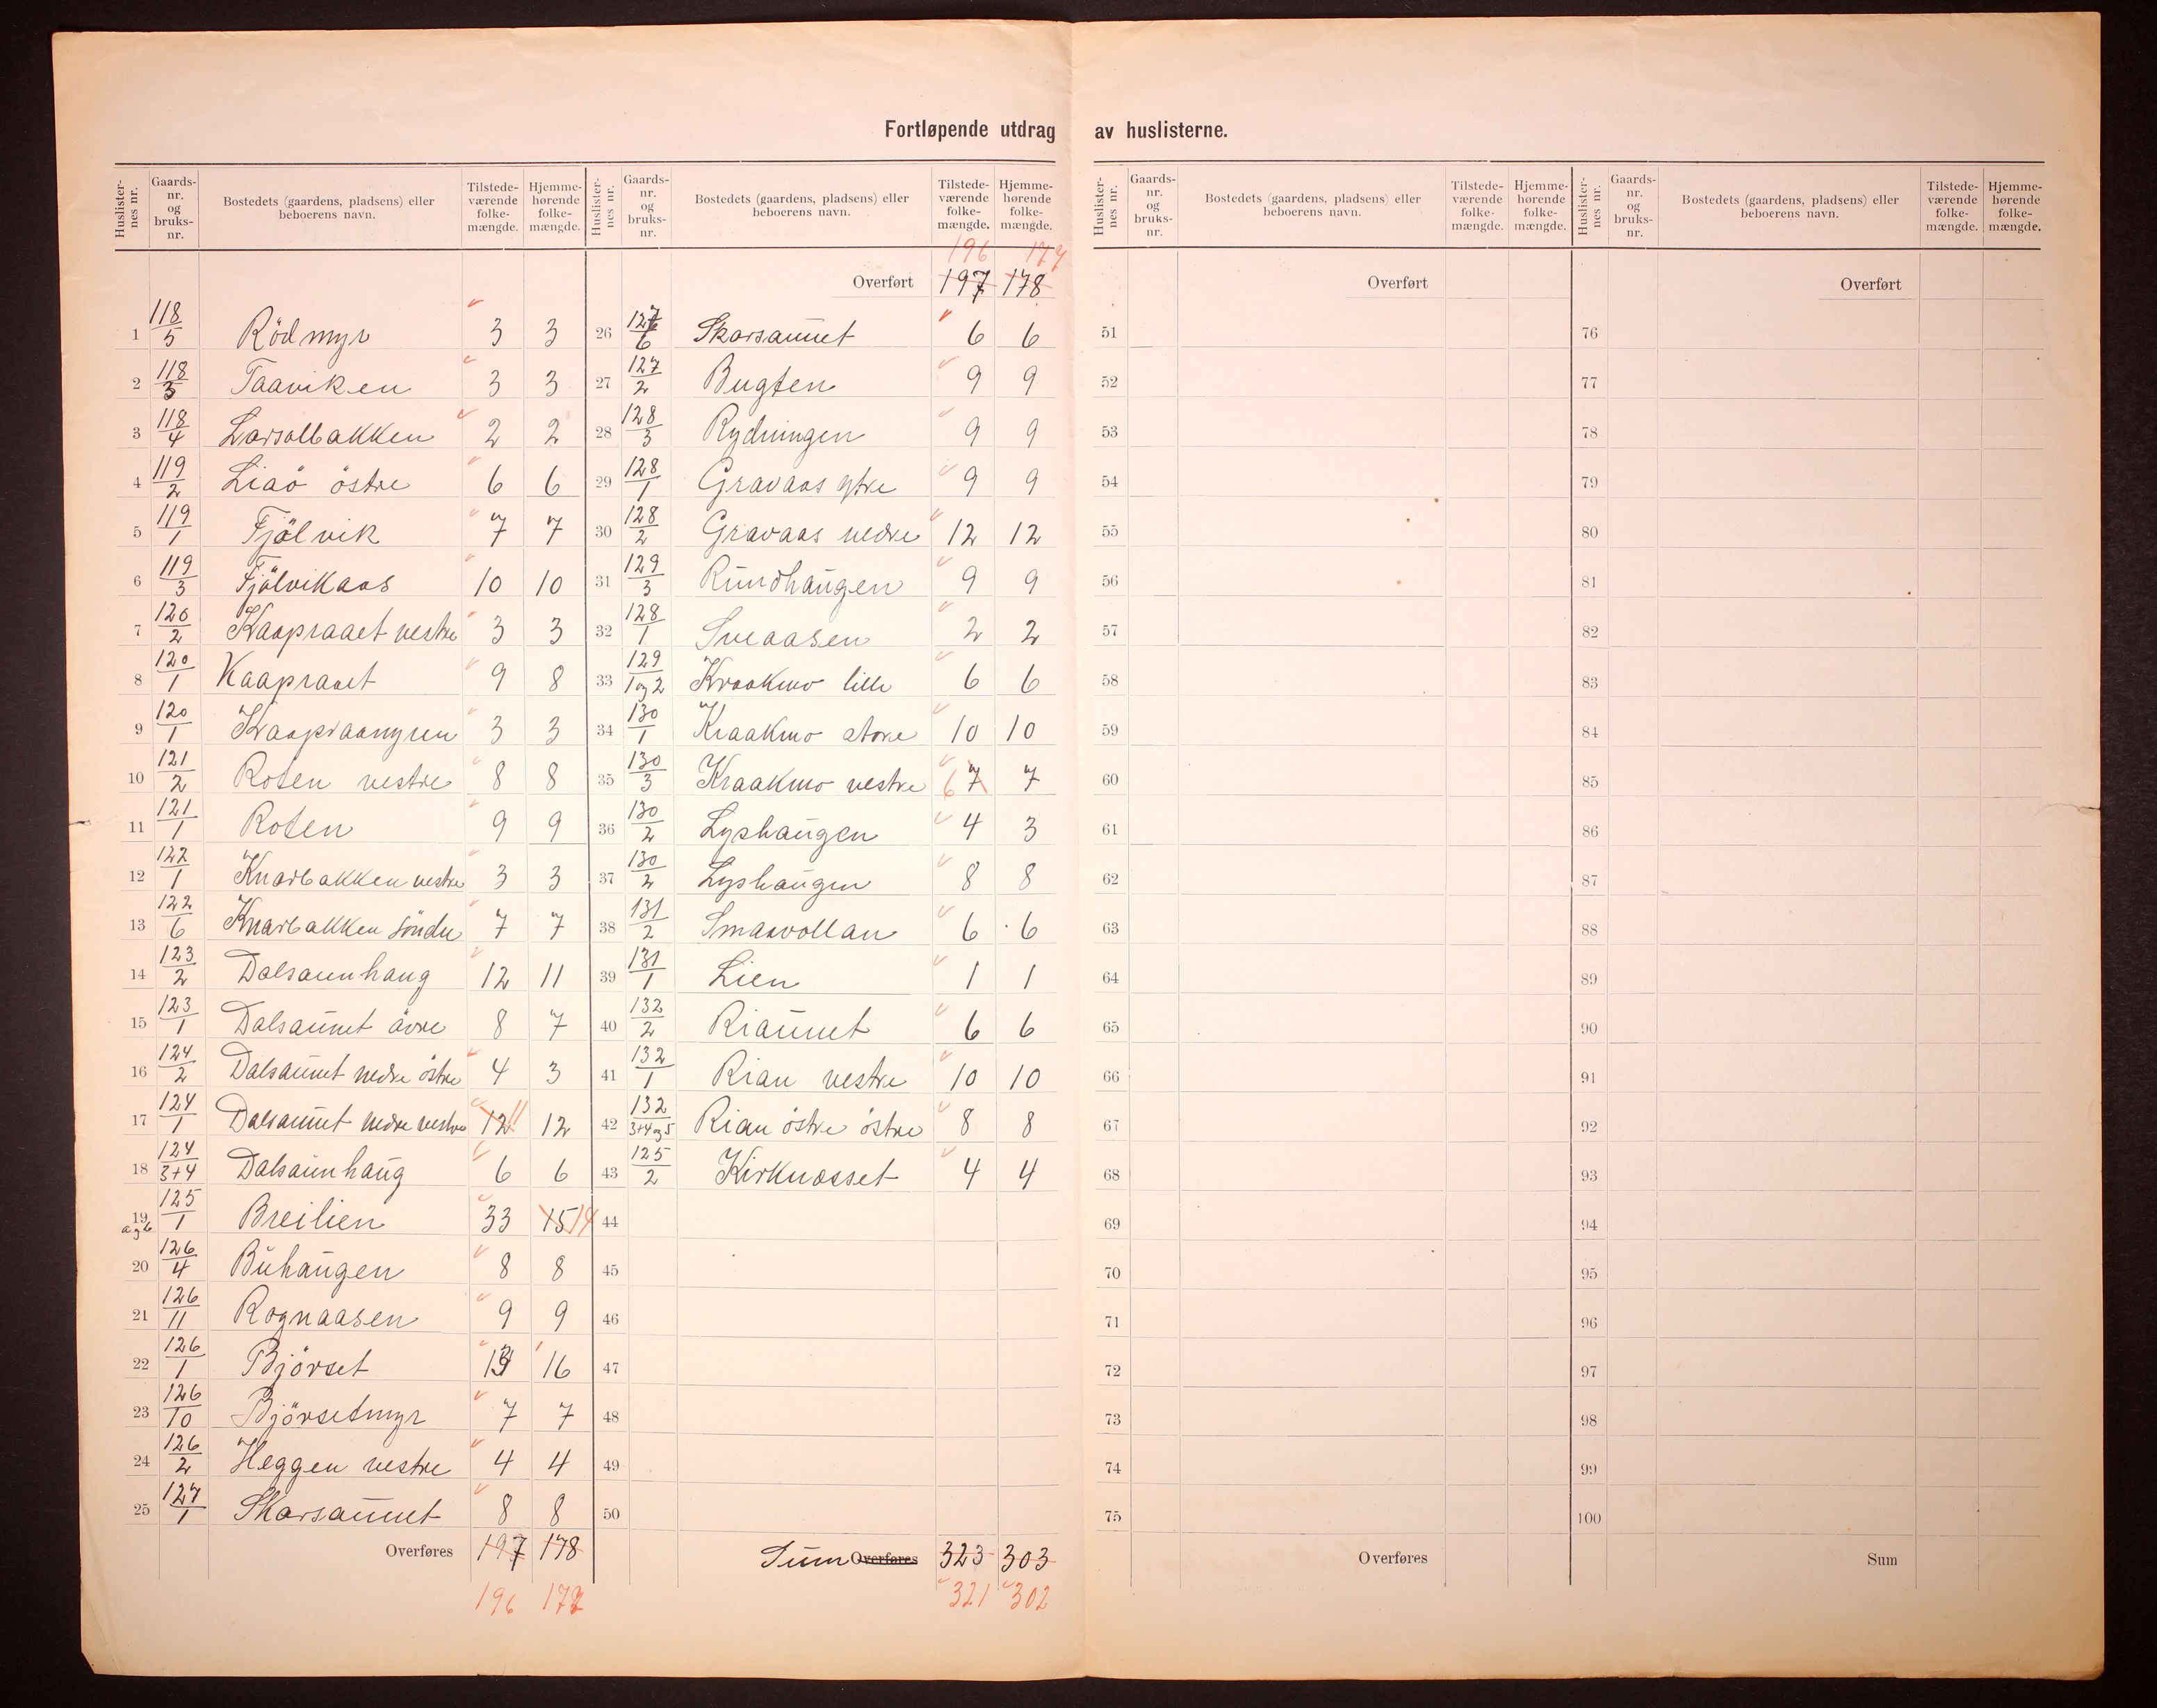 Fortløpende utdrag av huslisterne.
Huslister-nes nr. | Gaards-nr. og bruks-nr. | Bostedets (gaardens, pladsens) eller beboerens navn. | Tilstede-værende folke-mængde. | Hjemme-hørende folke-mængde.
1 118/5 Rödmyr 3 3
2 118/3 Taaviken 3 3
3 118/4 Larsalbakken 2 2
4 119/2 Liaö östre 6 6
5 119/1 Fjölvik 7 7
6 119/3 Fjölvikaas 10 10
7 120/2 Kaapraaet vestre 3 3
8 120/1 Kaapraaet 9 8
9 120/1 Kaapraamyren 3 3
10 121/2 Roten vestre 8 8
11 121/1 Roten 9 9
12 122/1 Knarbakken vestre 3 3
13 122/6 Knarbakken söndre 7 7
14 123/2 Dalsaunhaug 12 11
15 123/1 Dalsaunet övre 8 7
16 124/2 Dalsaunet nedre östre 4 3
17 124/1 Dalsaunet nedre vestre 12 11 12
18 124/3+4 Dalsaunhaug 6 6
19 a og b 125/1 Breilien 33 15 14
20 126/4 Buhaugen 8 8
21 126/11 Rognaasen 9 9
22 126/1 Björset 16
23 126/10 Björsetmyr 7 7
24 126/2 Heggen vestre 4 4
25 127/1 Skarsaunet 8 8
Overføres 197 178
196 177
Huslister-nes nr. | Gaards-nr. og bruks-nr. | Bostedets (gaardens, pladsens) eller beboerens navn. | Tilstede-værende folke-mængde. | Hjemme-hørende folke-mængde.
196 177
Overført 197 178
26 127/6 Skarsaunet 6 6
27 127/2 Bugten 9 9
28 128/3 Rydningen 9 9
29 128/1 Gravaas ytre 9 9
30 128/2 Gravaas nedre 12 12
31 129/3 Rundhaugen 9 9
32 128/1 Sveaasen 2 2
33 129/1 og 2 Kraakmo lille 6 6
34 130/1 Kraakmo store 10 10
35 130/3 Kraakmo vestre 6 7 7
36 130/2 Lyshaugen 4 3
37 130/2 Lyshaugen 8 8
38 131/2 Smaavollan 6 6
39 131/1 Lien 1 1
40 132/2 Riaunet 6 6
41 132/1 Rian vestre 10 10
42 132/3+4 og 5 Rian östre östre 8 8
43 125/2 Kirknesset 4 4
44
45
46
47
48
49
50
Sum Overføres 323 303
321 302
Huslister-nes nr. | Gaards-nr. og bruks-nr. | Bostedets (gaardens, pladsens) eller beboerens navn. | Tilstede-værende folke-mængde. | Hjemme-hørende folke-mængde.
Overført
51
52
53
54
55
56
57
58
59
60
61
62
63
64
65
66
67
68
69
70
71
72
73
74
75
Overføres
Huslister-nes nr. | Gaards-nr. og bruks-nr. | Bostedets (gaardens, pladsens) eller beboerens navn. | Tilstede-værende folke-mængde. | Hjemme-hørende folke-mængde.
Overført
76
77
78
79
80
81
82
83
84
85
86
87
88
89
90
91
92
93
94
95
96
97
98
99
100
Sum